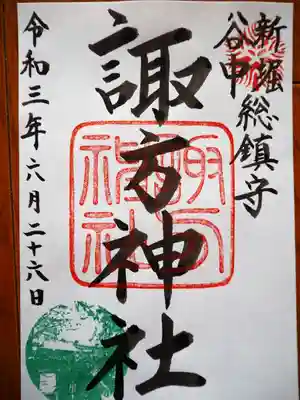 新堀
谷中
総鎮守
諏方神社
諏方神社
令和三年六月二十六日